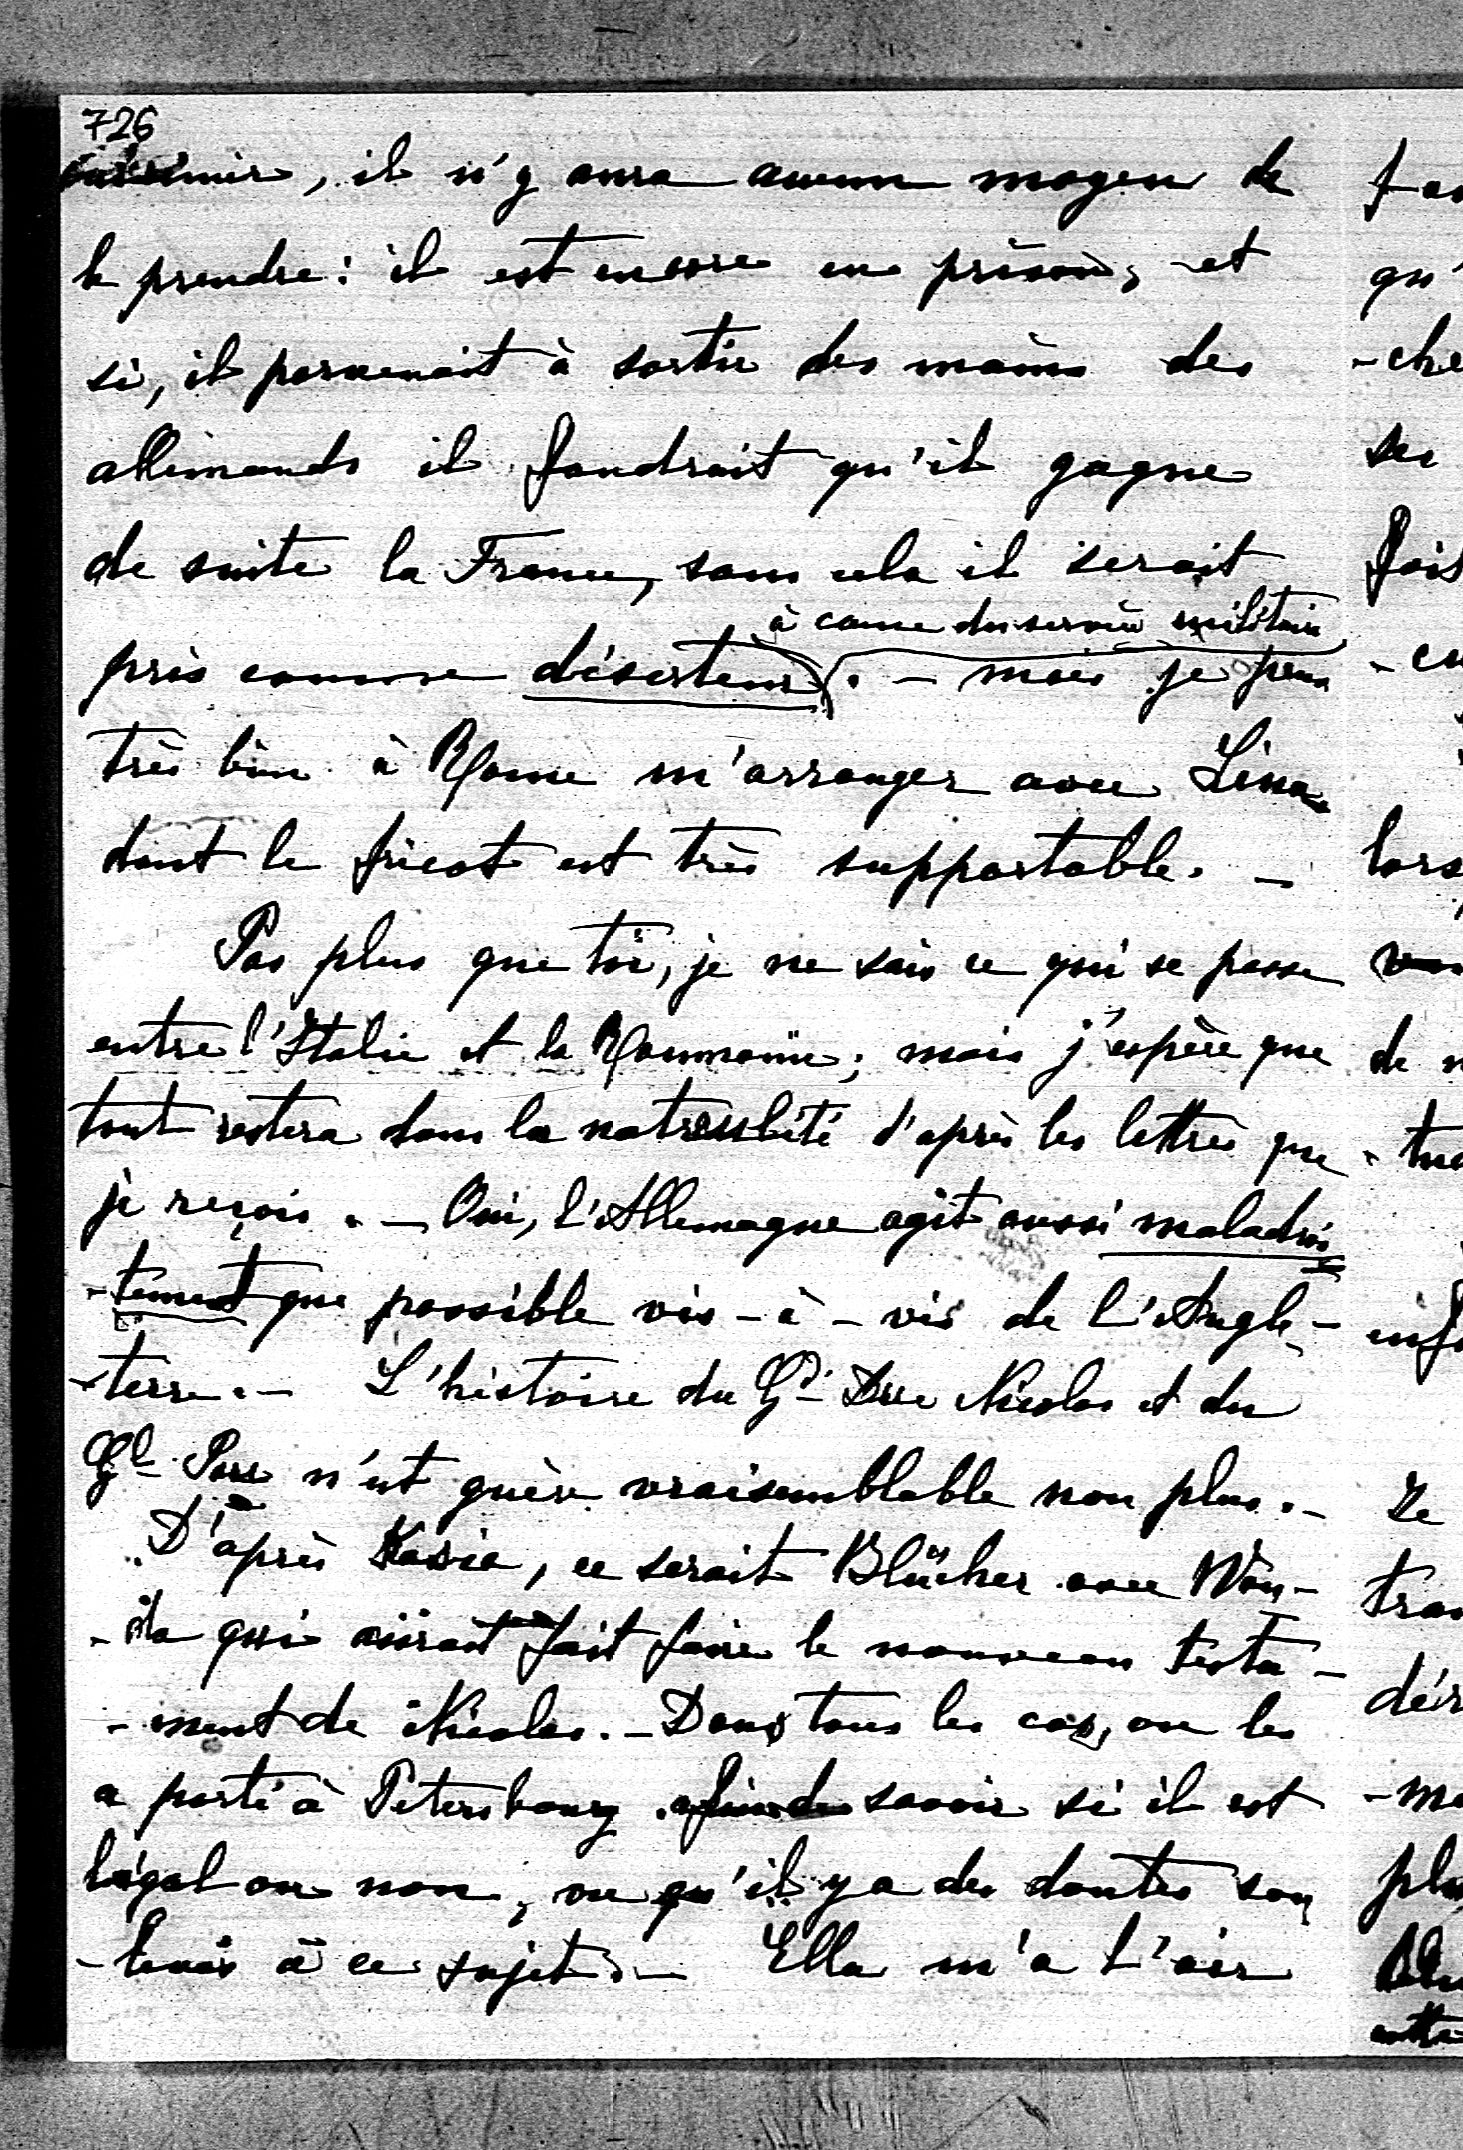 726
cuisinier, il n'y aura aucun moyen de
le prendre : il est encore en prison, et
si, il parvenait à sortir des mains des
allemands il faudrait qu'il gagne
de suite la France, sans cela il serait
à cause du service militaire
pris comme déserteur. — mais je peux
très bien à Rome m'arranger avec Lina
dont le fricot est très supportable. —
Pas plus que toi, je ne sais ce qui se passe
entre l'Italie et la Roumanie ; mais j'espère que
tout restera dans la neutralité d'après les lettres que
je reçois. — Oui, l'Allemagne agit aussi maladroi
-tement que possible vis-à-vis de l'Angle-
-terre. — L'histoire du Gd Duc Nicolas et du
Gl n'est guère vraisemblable non plus. —
D'après Kasia, ce serait Blücher avec
qui aurait fait faire le nouveau testa-
-ment de Nicolas. — Dans tous les cas, on les
a porté à Petersbourg afin de savoir si il est
légal ou non, vu qu'il y a des doutes sou
-levés à ce sujet. — Ella m'a l'air